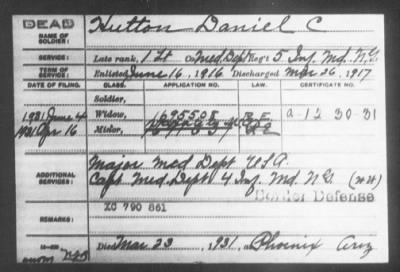 DEAD
NAME OF SOLDIER:
Hutton Daniel C
SERVICE:
Late rank, 1 Lt Co Med. Dept Reg't 5 Inf. Md. N.G.
TERM OF SERVICE:
Enlisted June 16, 1916 Discharged Mar 26, 1917
DATE OF FILING. CLASS. APPLICATION NO. LAW. CERTIFICATE NO.
Soldier,
1931 June 4 Widow, a-12-30-31
1931 Apr 16 Minor,
ADDITIONAL SERVICES:
Major Med. Dept U.S.A.
Capt. Med. Dept 4 Inf. Md. N.G.
Border Defense
REMARKS:
XC 790 861
Died Mar 23, 1931, at Phoenix Ariz